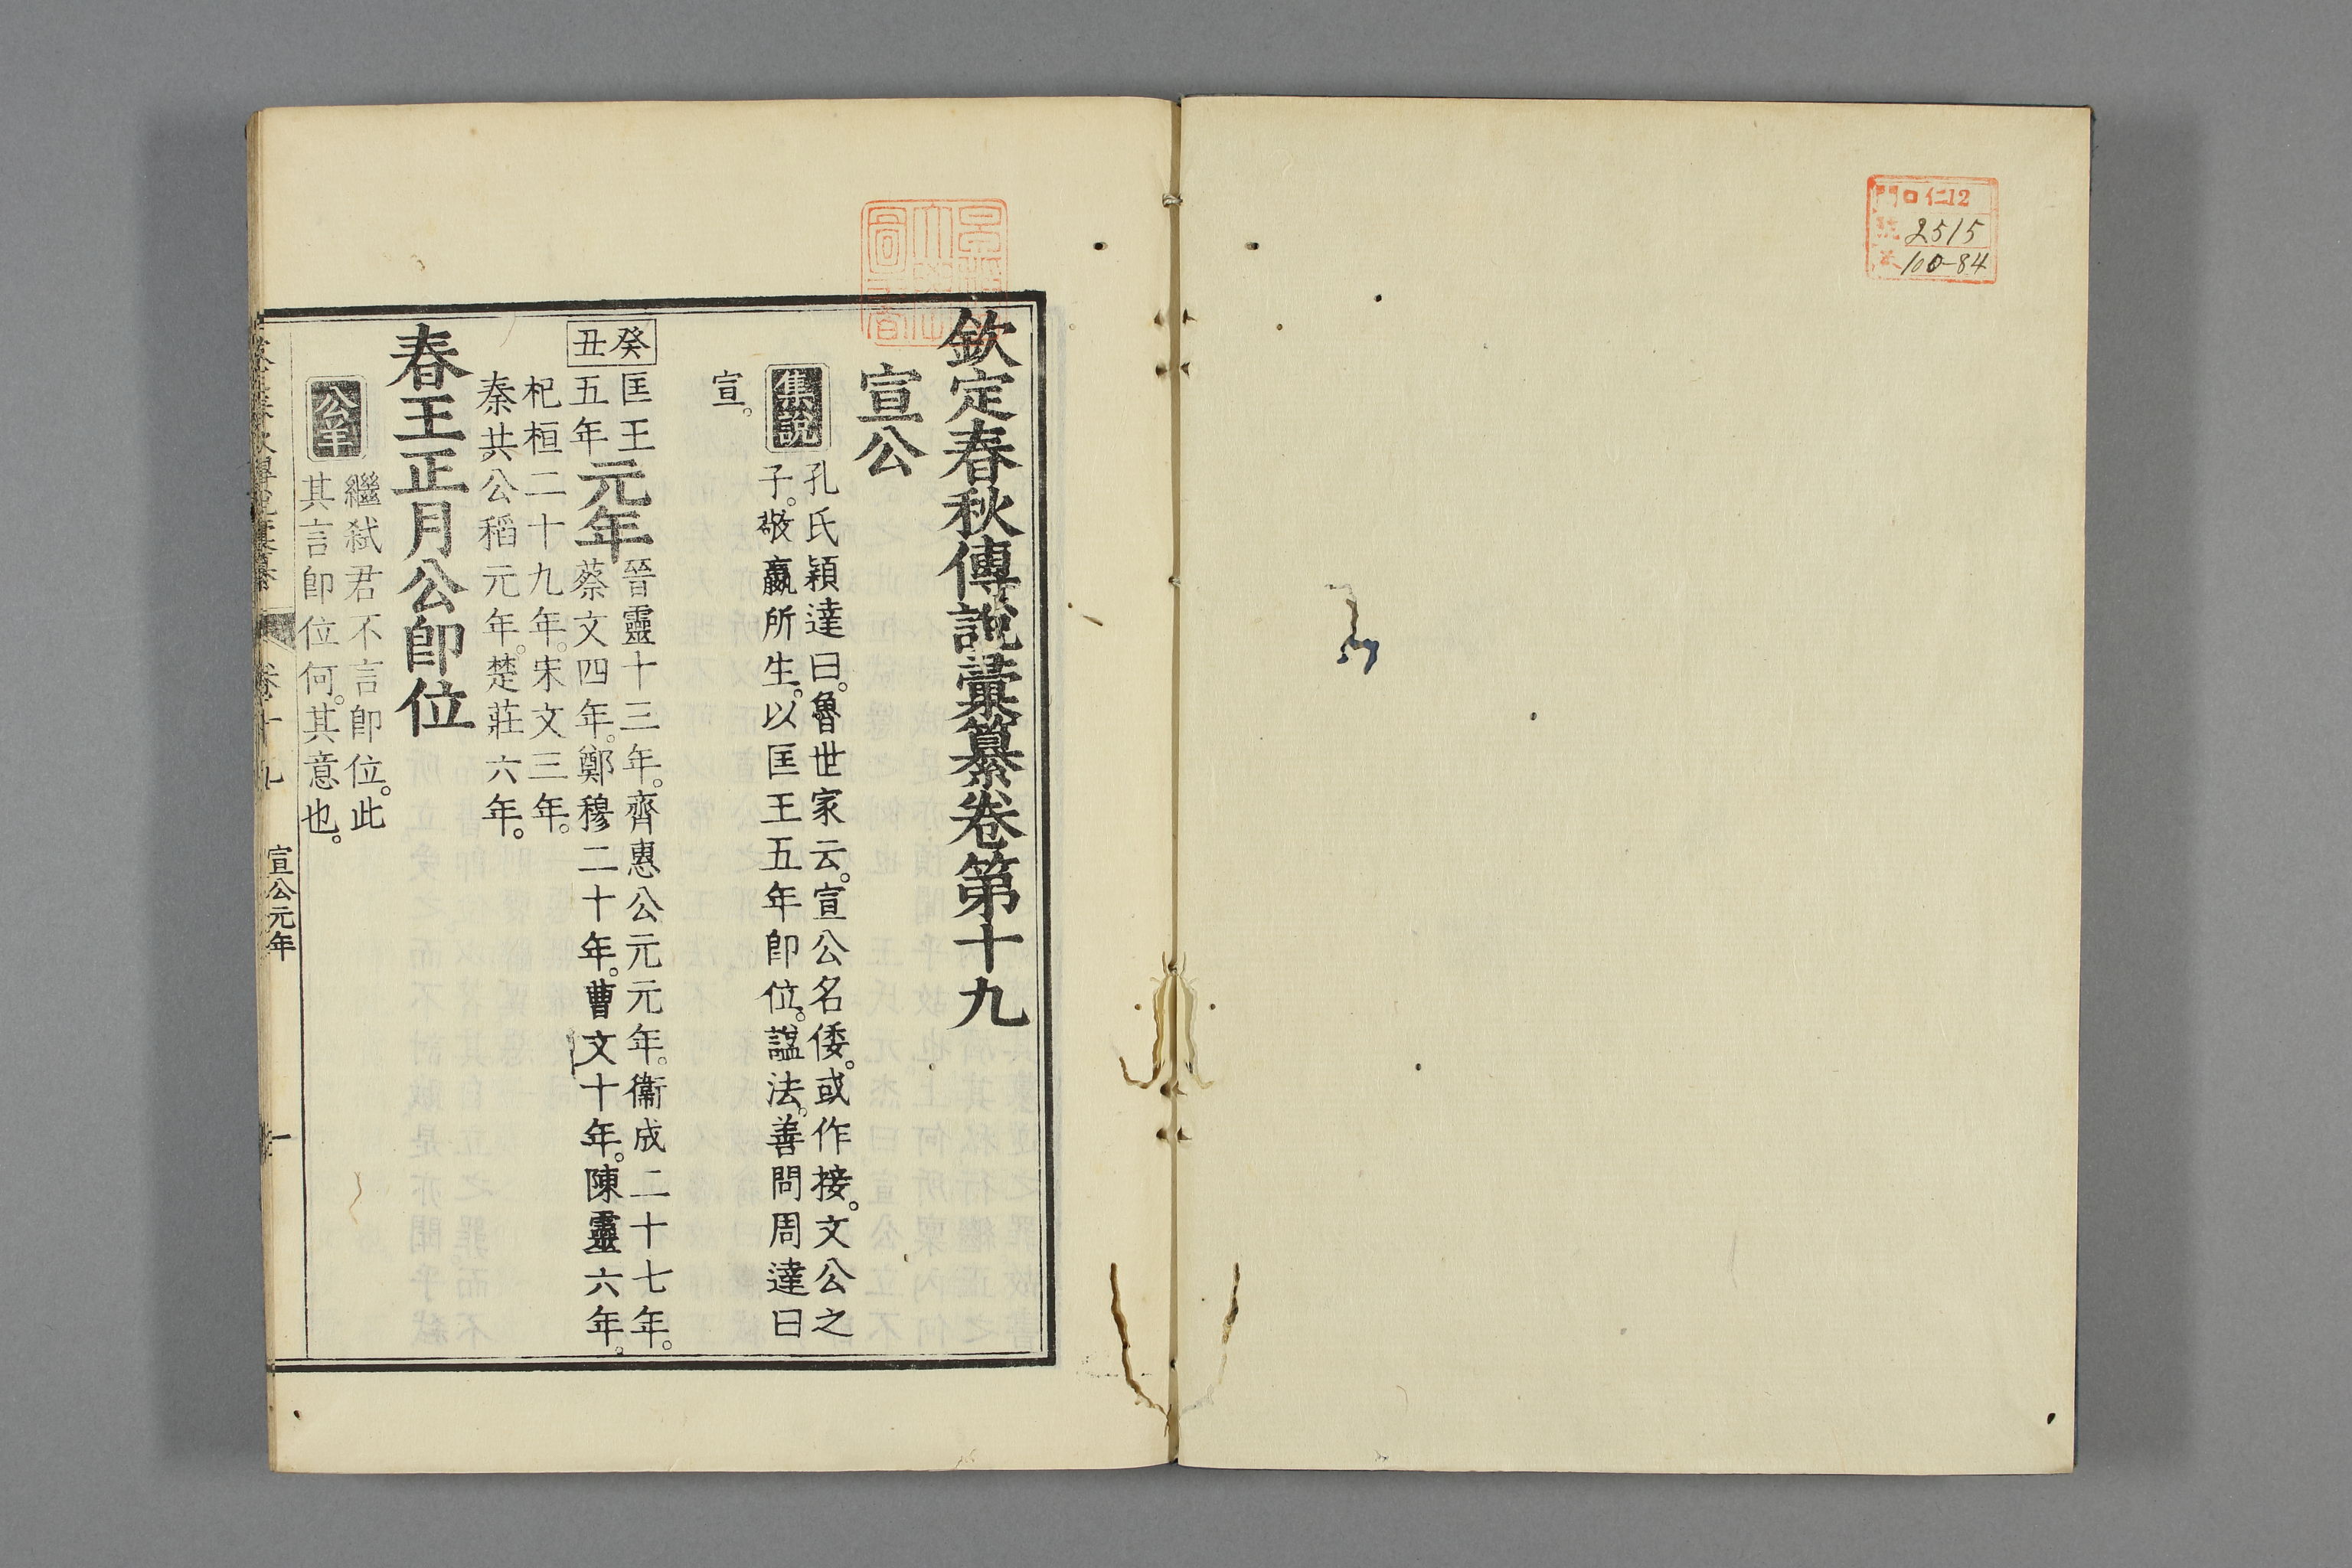 門 口 仁12
號 2515
100-84
欽定春秋傳說彙纂卷第十九
宣公
集說
孔氏穎達曰。魯世家云。宣公名倭。或作接。文公之
子。敬嬴所生。以匡王五年卽位。諡法。善問周達曰
宣。
癸丑
匡王
五年
元年
晉靈十三年。齊惠公元元年。衞成二十七年。
蔡文四年。鄭穆二十年。曹文十年。陳靈六年。
杞桓二十九年。宋文三年。
秦共公稻元年。楚莊六年。
春王正月公卽位
公羊
繼弒君不言卽位。此
其言卽位何。其意也。
卷十九
宣公元年
一